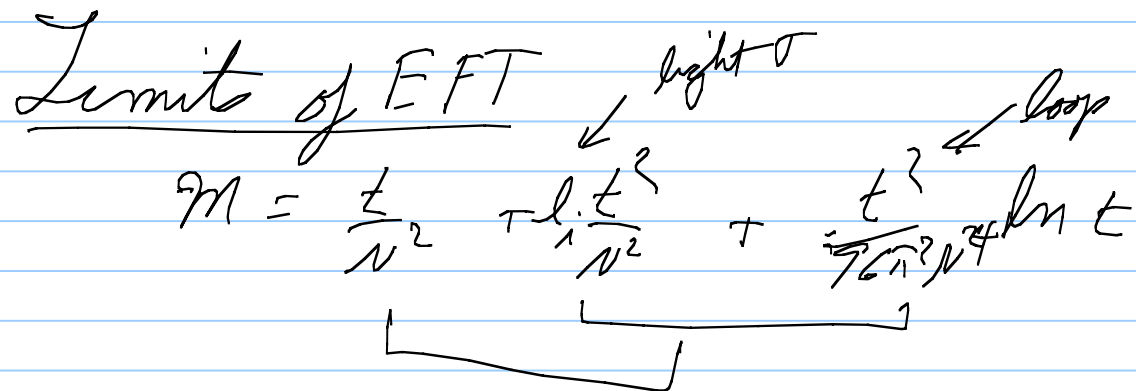 Limits of EFT
light σ
loop
M = t/v² + l₁ t²/v² + t²/96π²v⁴ ln t